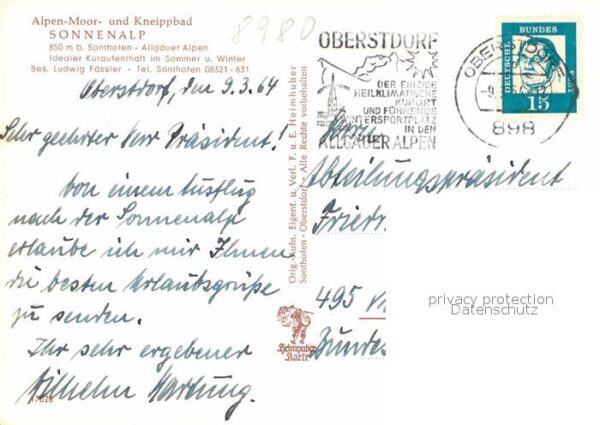 Alpen-Moor- und Kneippbad
SONNENALP
850 m b. Sonthofen - Allgäuer Alpen
Idealer Kuraufenthalt im Sommer u. Winter
Bes. Ludwig Fässler - Tel. Sonthofen 08321 - 631
8980
Oberstdorf, den 9.3.64
Sehr geehrter Herr Präsident!
Von einem Ausflug
nach der Sonnenalp
erlaube ich mir Ihnen
die besten Urlaubsgrüße
zu senden.
Ihr sehr ergebener
Wilhelm Hartung.
17028
Orig.-Aufn. Eigent. u. Verl. F. u. E. Heimhuber
Sonthofen - Oberstdorf - Alle Rechte vorbehalten
Heimhuber
Karte
OBERSTDORF
DER EINZIGE
HEILKLIMATISCHE
KURORT
UND FÜHRENDE
WINTERSPORTPLATZ
IN DEN
ALLGÄUER ALPEN
OBERSTDORF
898
DEUTSCHE
BUNDES
POST
15
Herrn
Abteilungspräsident
Friedr
495
Bundes
privacy protection
Datenschutz